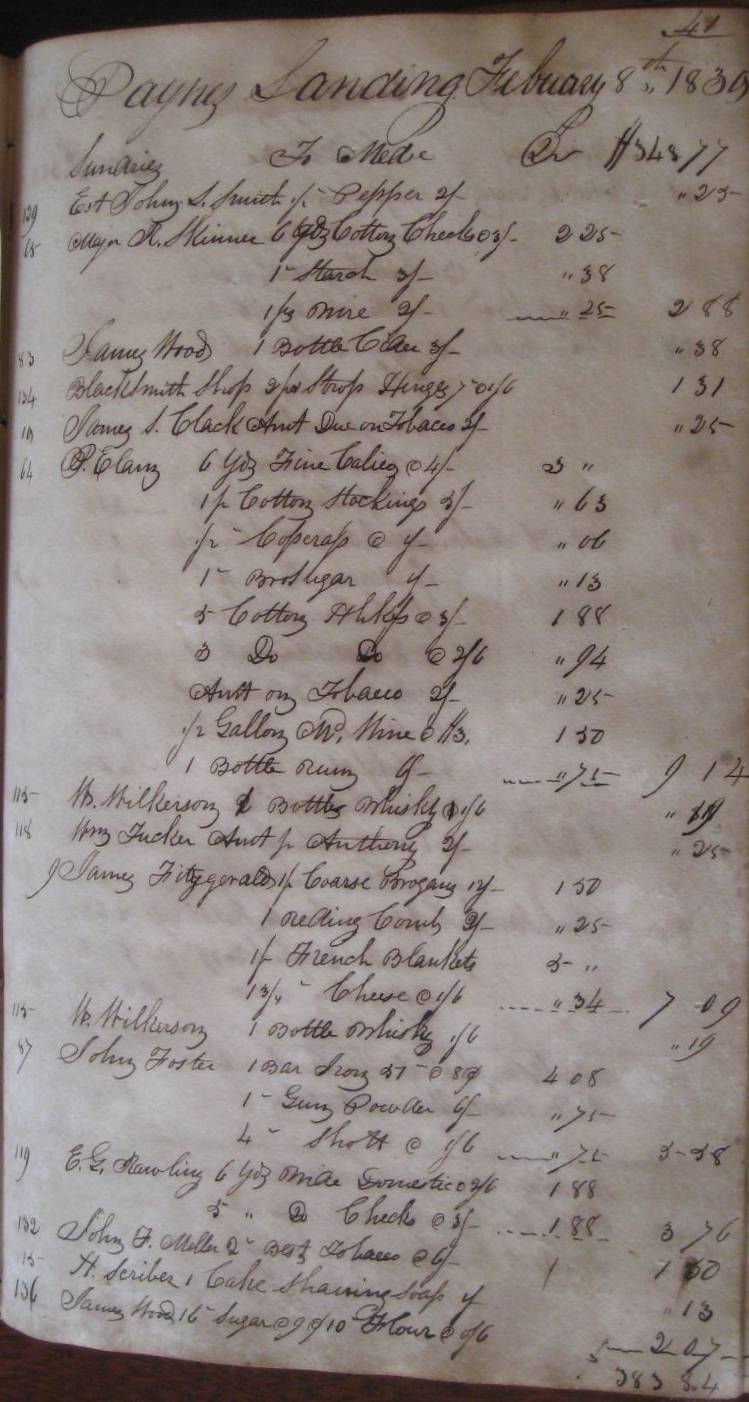 41
Paynes Landing February 8th 1839
Sundries To Mdse Dr $348 77
129 Est John S. Smith /2 - Pepper 2/- " 25
65 Major R. Skinner 6 Yds Cotton Check @ 3/- 2 25
1 - Starch 3/- " 38
1/3 Wire 2/- " 25 2 88
83 James Wood 1 Bottle Cider 3/- " 38
134 Blacksmith Shop 2/pr Strap Hinges 7 - @ 1/6 1 31
19 James S. Clack Amt Due on Tobacco 2/- " 25
64 P. Elam 6 Yds Fine Calico @ 4/- 3 "
1/p Cotton Stockings 5/- " 63
/2 - Copperass @ 1/- " 06
1 - Bro Sugar 1/- " 13
5 Cotton Hhkfs @ 3/- 1 88
3 Do Do @ 2/6 " 94
Amt on Tobacco 2/- " 25
/2 Gallon M. Wine @ $3. 1 50
1 Bottle Rum 6/- " 75 9 14
115 W. Wilkerson 1 Bottle Whisky @ 1/6 " 19
118 Wm Tucker Amt pr Anthony 2/- " 25
9 James Fitzgerald 1/p Coarse Brogans 12/- 1 50
1 Reding Comb 2/- " 25
1/p French Blankets 5 "
1 3/4 - Cheese @ 1/6 " 34 7 09
115 W. Wilkerson 1 Bottle Whisky 1/6 " 19
87 John Foster 1 Bar Iron 51 - @ 8¢ 4 08
1 - Gun Powder 6/- " 75
4 - Shott @ 1/6 " 75 5 58
119 E. G. Rawling 6 Yds Wide Domestic @ 2/6 1 88
5 " Do Check @ 3/- 1 88 3 76
132 John F. Meller 2 - Best Tobacco @ 6/- 1 50
15 H. Scriber 1 Cake Shaving Soap 1/ " 13
136 James Wood 16 - Sugar @ 9¢ 10 - Flour @ /6 2 07
$ 383 84